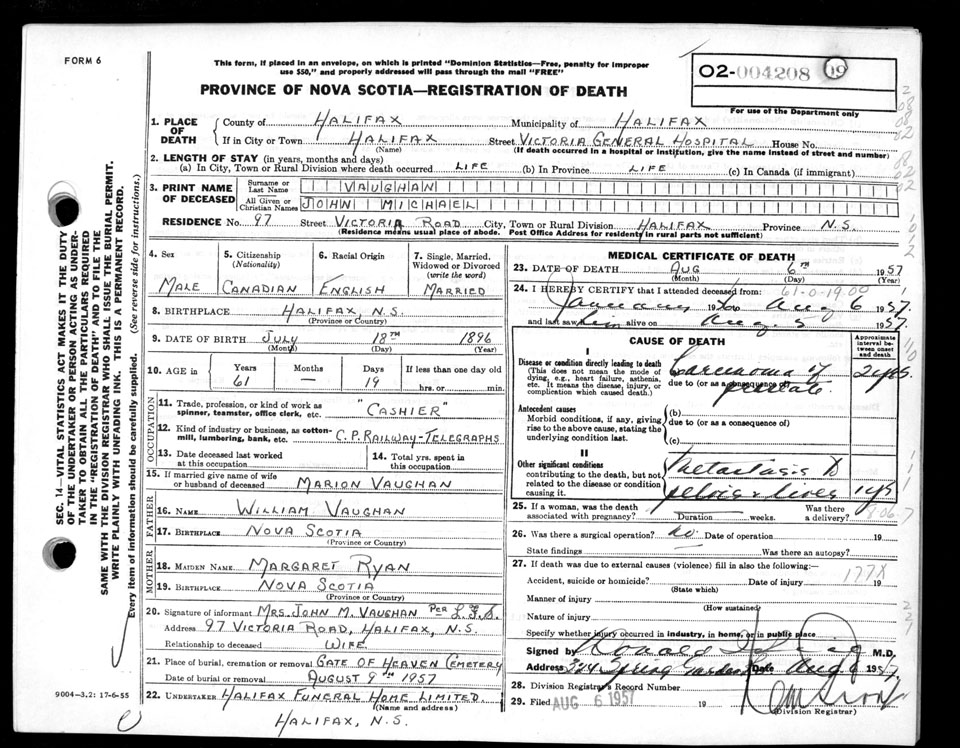 FORM 6
This form, if placed in an envelope, on which is printed "Dominion Statistics—Free, penalty for improper
use $50," and properly addressed will pass through the mail "FREE"
02-004208 19
For use of the Department only
PROVINCE OF NOVA SCOTIA—REGISTRATION OF DEATH
1. PLACE OF DEATH County of HALIFAX Municipality of HALIFAX
If in City or Town HALIFAX Street VICTORIA GENERAL HOSPITAL House No.
(Name) (If death occurred in a hospital or institution, give the name instead of street and number)
2. LENGTH OF STAY (in years, months and days)
(a) In City, Town or Rural Division where death occurred LIFE (b) In Province LIFE (c) In Canada (if immigrant)
3. PRINT NAME OF DECEASED Surname or Last Name VAUGHAN
All Given or Christian Names JOHN MICHAEL
RESIDENCE No. 97 Street VICTORIA ROAD City, Town or Rural Division HALIFAX Province N.S.
(Residence means usual place of abode. Post Office Address for residents in rural parts not sufficient)
4. Sex
MALE
5. Citizenship
(Nationality)
CANADIAN
6. Racial Origin
ENGLISH
7. Single, Married,
Widowed or Divorced
(write the word)
MARRIED
8. BIRTHPLACE HALIFAX, N.S.
(Province or Country)
9. DATE OF BIRTH JULY 18TH 1896
(Month) (Day) (Year)
10. AGE in Years Months Days If less than one day old
61 — 19 hrs. or min.
OCCUPATION
11. Trade, profession, or kind of work as
spinner, teamster, office clerk, etc. "CASHIER"
12. Kind of industry or business, as cotton-
mill, lumbering, bank, etc. C.P. RAILWAY-TELEGRAPHS
13. Date deceased last worked
at this occupation
14. Total yrs. spent in
this occupation
15. If married give name of wife
or husband of deceased MARION VAUGHAN
FATHER
16. NAME WILLIAM VAUGHAN
17. BIRTHPLACE NOVA SCOTIA
(Province or Country)
MOTHER
18. MAIDEN NAME MARGARET RYAN
19. BIRTHPLACE NOVA SCOTIA
(Province or Country)
20. Signature of informant MRS. JOHN M. VAUGHAN PER
Address 97 VICTORIA ROAD, HALIFAX, N.S.
Relationship to deceased WIFE
21. Place of burial, cremation or removal GATE OF HEAVEN CEMETERY
Date of burial or removal AUGUST 9TH 1957
22. UNDERTAKER HALIFAX FUNERAL HOME LIMITED
(Name and address)
HALIFAX, N.S.
MEDICAL CERTIFICATE OF DEATH
23. DATE OF DEATH AUG 6TH 1957
(Month) (Day) (Year)
24. I HEREBY CERTIFY that I attended deceased from 61-0-19.00
January 1956 to Aug 6 1957
and last saw him alive on Aug. 5 1957
CAUSE OF DEATH
Approximate
interval be-
tween onset
and death
I
Disease or condition directly leading to death
(This does not mean the mode of
dying, e.g., heart failure, asthenia,
etc. It means the disease, injury, or
complication which caused death.)
Carcinoma of
due to (or as a consequence of) prostate
2 yrs.
Antecedent causes
Morbid conditions, if any, giving
rise to the above cause, stating the
underlying condition last.
(b)
due to (or as a consequence of)
(c)
II
Other significant conditions
contributing to the death, but not
related to the disease or condition
causing it.
Metastasis to
pelvis & liver 1 yr
25. If a woman, was the death Was there
associated with pregnancy? Duration weeks. a delivery?
26. Was there a surgical operation? no Date of operation 19
State findings Was there an autopsy?
27. If death was due to external causes (violence) fill in also the following:—
Accident, suicide or homicide? Date of injury 19
177X
(State which)
Manner of injury
(How sustained)
Nature of injury
Specify whether injury occurred in industry, in home, or in public place
Signed by Ronald M.D.
Address 244 Spring Garden Date Aug 6 1957
28. Division Registrar's Record Number
29. Filed AUG 6 1957 19
(Division Registrar)
SEC. 14—VITAL STATISTICS ACT MAKES IT THE DUTY
OF THE UNDERTAKER OR PERSON ACTING AS UNDER-
TAKER TO OBTAIN ALL THE PARTICULARS REQUIRED
IN THE "REGISTRATION OF DEATH" AND TO FILE THE
SAME WITH THE DIVISION REGISTRAR WHO SHALL ISSUE THE BURIAL PERMIT.
WRITE PLAINLY WITH UNFADING INK. THIS IS A PERMANENT RECORD.
Every item of information should be carefully supplied. (See reverse side for instructions.)
9004—3.2: 17-6-55